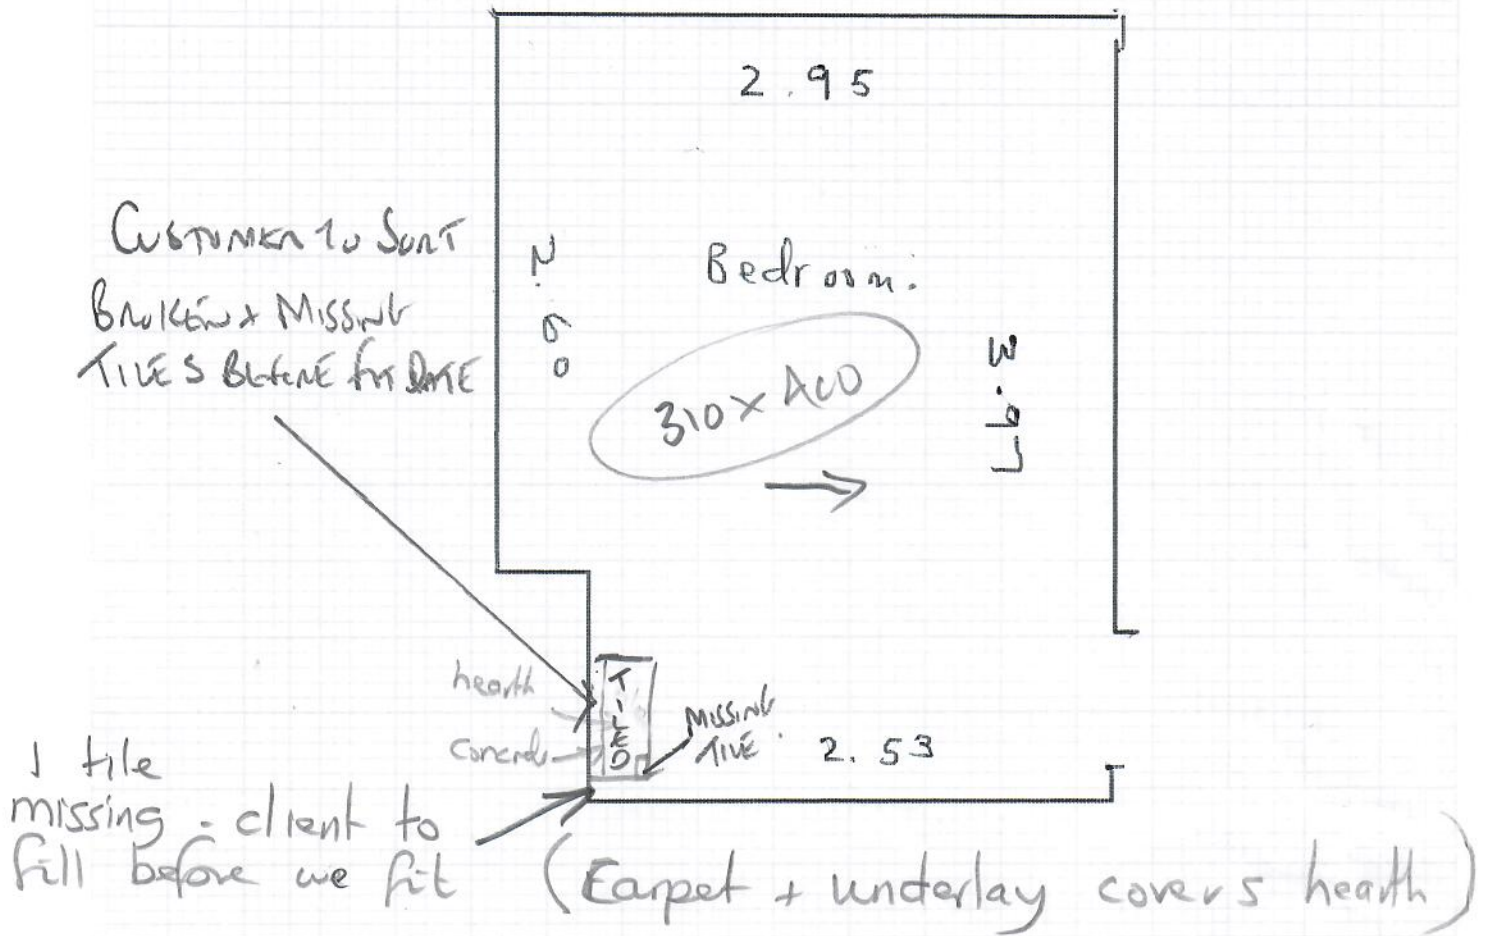 2.95
CUSTOMER TO SORT
BROKEN + MISSING
TILES BEFORE FIT DATE
2.60
Bedroom.
310 x 400
3.97
hearth
TILED
MISSING
TILE
2.53
1 tile
missing - client to
fill before we fit
(Carpet + underlay covers hearth)